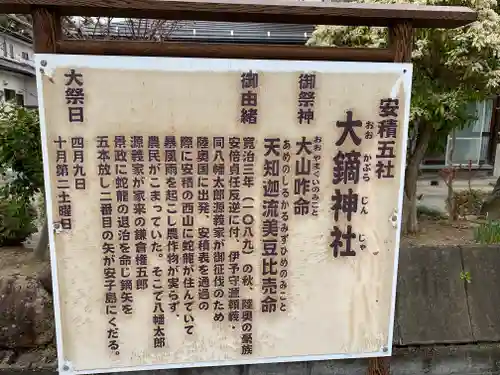 安積五社
大鏑神社
おおかぶらじんじゃ
御祭神
大山咋命
おおやまくいのみこと
天知迦流美豆比売命
あめのしるかるみずひめのみこと
御由緒
寛治三年(一〇八九)の秋、陸奥の豪族
安倍貞任反逆に付、伊予守源頼義・
同八幡太郎源義家が御征伐のため
陸奥国に出発、安積表を通過の
際に安積の西山に蛇龍が住んでいて
暴風雨を起こし農作物が実らず、
農民がこまっていた。そこで八幡太郎
源義家が家来の鎌倉権五郎
景政に蛇龍の退治を命じ鏑矢を
五本放し二番目の矢が安子島にくだる。
大祭日
四月九日
十月第二土曜日